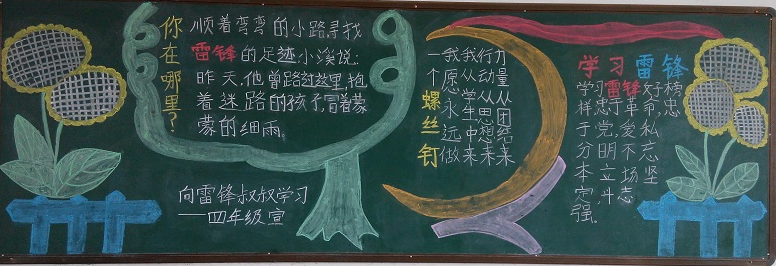 你在哪里？
顺着弯弯的小路寻找
雷锋的足迹小溪说：
昨天，他曾路过这里，抱
着迷路的孩子，冒着蒙
蒙的细雨。
向雷锋叔叔学习
——四年级宣
力量从团结来
行动从思想来
我从学生中来
我愿永远做
一个螺丝钉
学习雷锋
学习雷锋好榜
样忠于革命忠
于党爱私
分明不忘
本立场坚
定斗志
强。